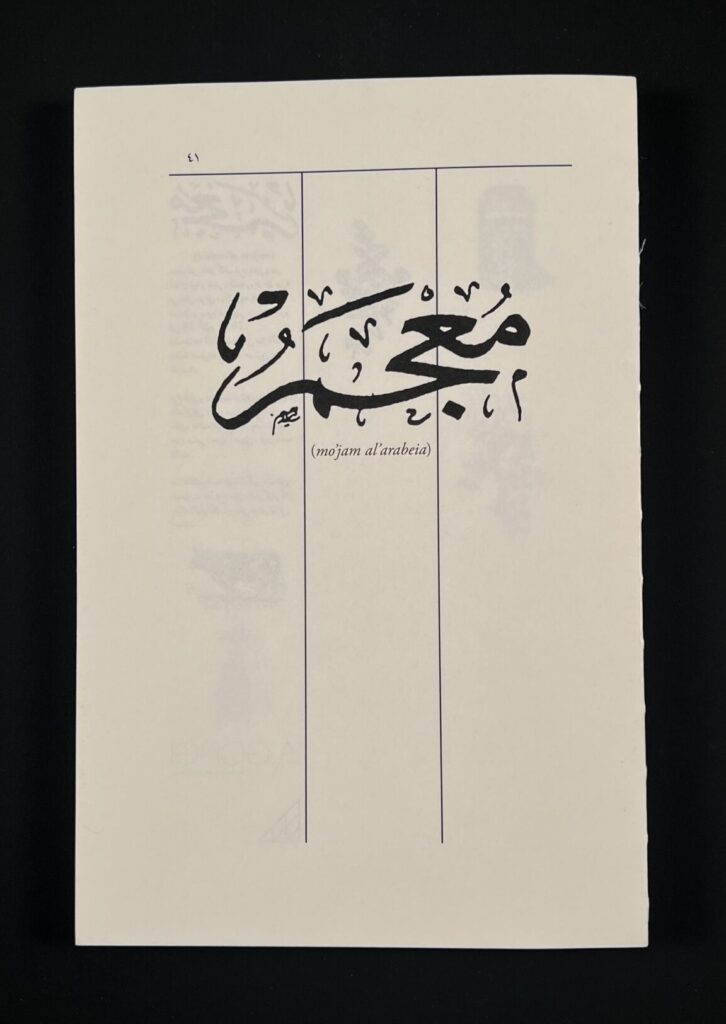 ٤١
مُعْجَم
(mo'jam al'arabeia)